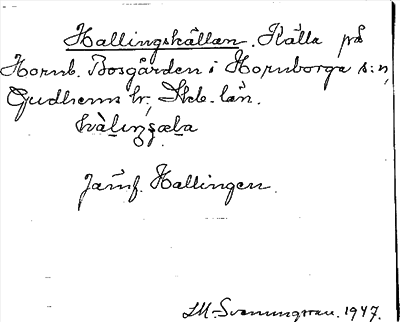 Hallingskällan. Källa på
Hornb. Bosgården i Hornborga s:n,
Gudhems hr, Skb. län.
Jämf. Hallingen.
LM. Svenungsson. 1947.